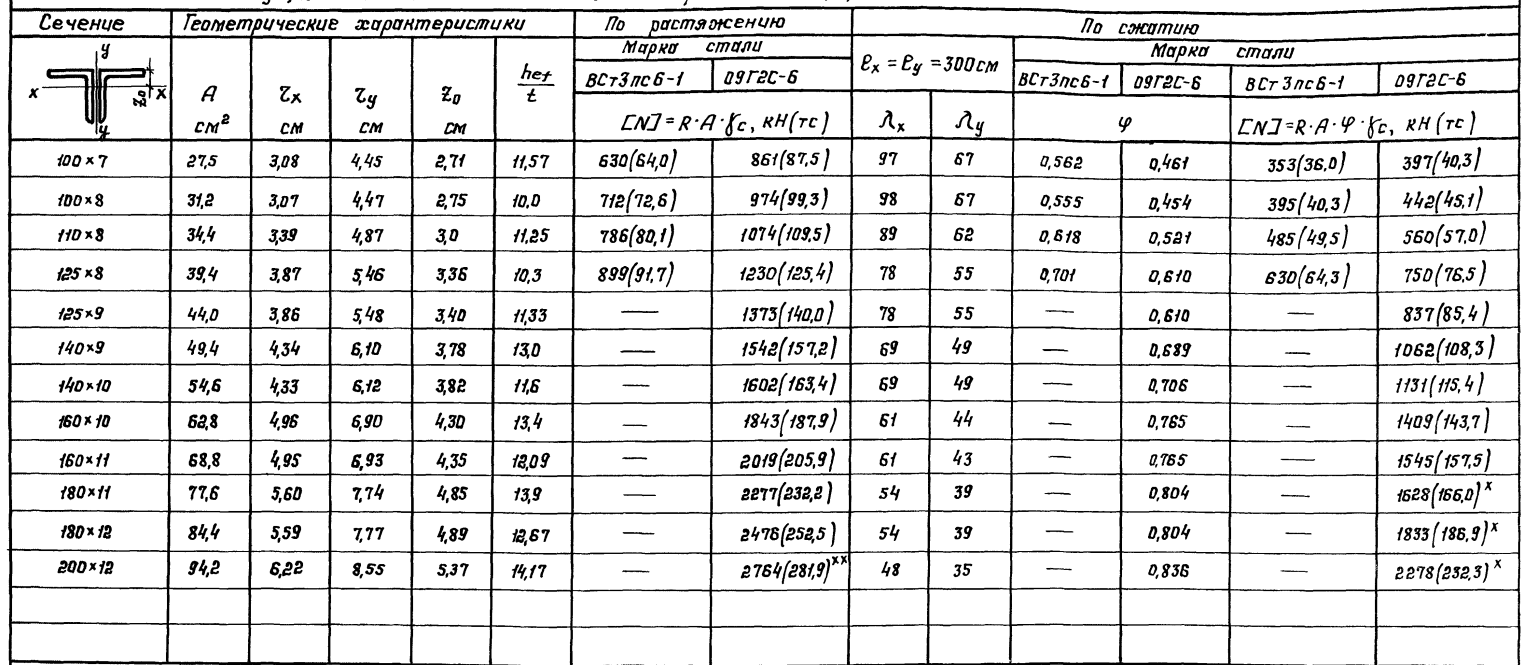 Сечение Геометрические характеристики По растяжению По сжатию
Марка стали ℓx = ℓy = 300 см Марка стали
y x x y z₀ A см² τx см τy см z₀ см hef/t ВСт3пс6-1 09Г2С-6 ВСт3пс6-1 09Г2С-6 ВСт3пс6-1 09Г2С-6
[N]=R·A·γc, кН(тс) λx λy φ [N]=R·A·φ·γc, кН(тс)
100×7 27,5 3,08 4,45 2,71 11,57 630(64,0) 861(87,5) 97 67 0,562 0,461 353(36,0) 397(40,3)
100×8 31,2 3,07 4,47 2,75 10,0 712(72,6) 974(99,3) 98 67 0,555 0,454 395(40,3) 442(45,1)
110×8 34,4 3,39 4,87 3,0 11,25 786(80,1) 1074(109,5) 89 62 0,618 0,521 485(49,5) 560(57,0)
125×8 39,4 3,87 5,46 3,36 10,3 899(91,7) 1230(125,4) 78 55 0,701 0,610 630(64,3) 750(76,5)
125×9 44,0 3,86 5,48 3,40 11,33 — 1373(140,0) 78 55 — 0,610 — 837(85,4)
140×9 49,4 4,34 6,10 3,78 13,0 — 1542(157,2) 69 49 — 0,689 — 1062(108,3)
140×10 54,6 4,33 6,12 3,82 11,6 — 1602(163,4) 69 49 — 0,706 — 1131(115,4)
160×10 62,8 4,96 6,90 4,30 13,4 — 1843(187,9) 61 44 — 0,765 — 1409(143,7)
160×11 68,8 4,95 6,93 4,35 12,09 — 2019(205,9) 61 43 — 0,765 — 1545(157,5)
180×11 77,6 5,60 7,74 4,85 13,9 — 2277(232,2) 54 39 — 0,804 — 1628(166,0)ˣ
180×12 84,4 5,59 7,77 4,89 12,67 — 2476(252,5) 54 39 — 0,804 — 1833(186,9)ˣ
200×12 94,2 6,22 8,55 5,37 14,17 — 2764(281,9)ˣˣ 48 35 — 0,836 — 2278(232,3)ˣ